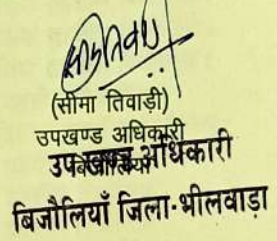 (सीमा तिवाड़ी)
उपखण्ड अधिकारी
बिजौलियां
उप खण्ड अधिकारी
बिजौलियाँ जिला-भीलवाड़ा